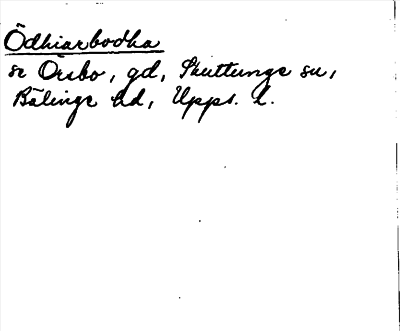 Ödhiarbodha
se Örsbo, gd, Skuttunge sn,
Bälinge hd, Upps. l.